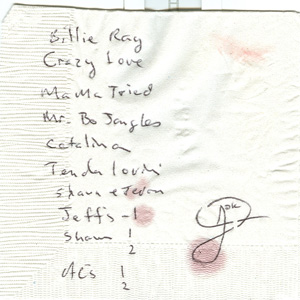 Billie Ray
Crazy Love
MaMa Tried
Mr. Bo Jangles
Catalina
Tenda lovin'
Shaun e
Jeff's - 1
Shaun 1
2
1
2